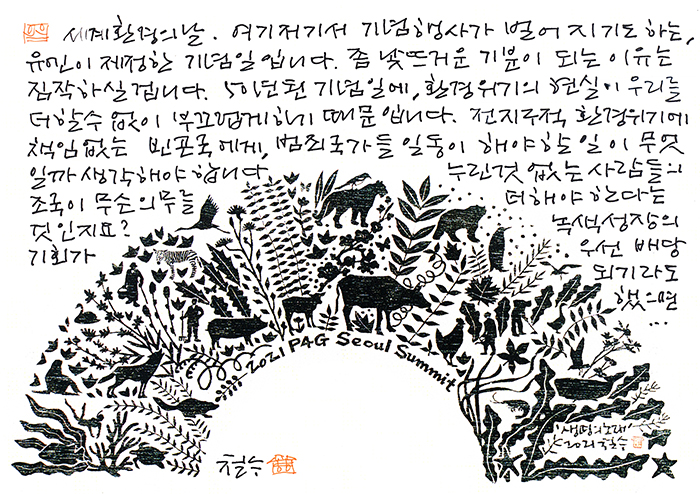 세계환경의날. 여기저기서 기념행사가 벌어지기도 하는,
유엔이 제정한 기념일입니다. 좀 낯뜨거운 기분이 되는 이유는
짐작하실 겁니다. 50년된 기념일에, 환경위기의 현실이 우리를
더할수 없이 부끄럽게하기 때문입니다. 전지구적 환경위기에
책임없는 빈곤국에게, 범죄국가들 일동이 해야할 일이 무엇
일까 생각해야 합니다. 누린것 없는 사람들의
조국이 무슨 의무를 더해야 한다는
것인지요? 녹색성장의
기회가 우선 배당
되기라도
했으면
...
2021 P4G Seoul Summit
'생명의노래'
2021 철수
철수